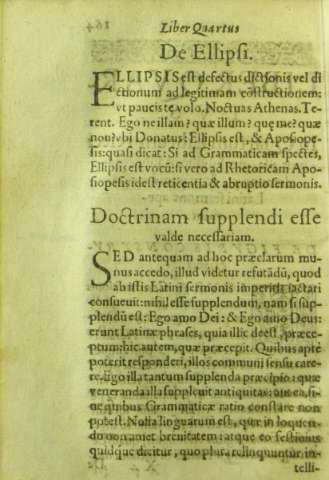 164
Liber Quartus
De Ellipsi.
ELLIPSIS est defectus dictionis vel di
ctionum ad legitimam cõstructionem:
vt paucis te volo. Noctuas Athenas. Te-
rent. Ego ne illam? quæ illum? quę me? quæ
non? vbi Donatus: Ellipsis est, & Aposiope-
sis: quasi dicat: Si ad Grammaticam spectes,
Ellipsis est vocū: si vero ad Rhetoricam Apo-
siopesis id est reticentia & abruptio sermonis.
Doctrinam supplendi esse
valde necessariam.
SED antequam ad hoc præclarum mu-
nus accedo, illud videtur refutādū, quod
ab istis Latini sermonis imperitis iactari
consueuit: nihil esse supplendum, nam si sup-
plendū est: Ego amo Dei: & Ego amo Deus:
erunt Latinæ phrases, quia illic deest, præce-
ptum: hic autem, quæ præcepit. Quibus apte
poterit responderi, illos communi sensu care-
re. Ego illa tantum supplenda præcipio: quæ
veneranda illa suppleuit antiquitas: aut ea, si-
ne quibus Grammaticæ ratio constare non
potest. Nulla linguarum est, quæ in loquen-
do non amet breuitatem: atque eo festiuius
quidque dicitur, quo plura relinquuntur in-
telli-